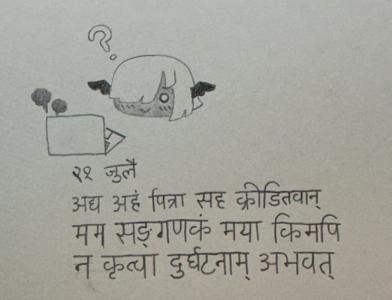 २१ जुलै
अद्य अहं पित्रा सह क्रीडितवान्
मम सङ्गणकं मया किमपि
न कृत्वा दुर्घटनाम् अभवत्